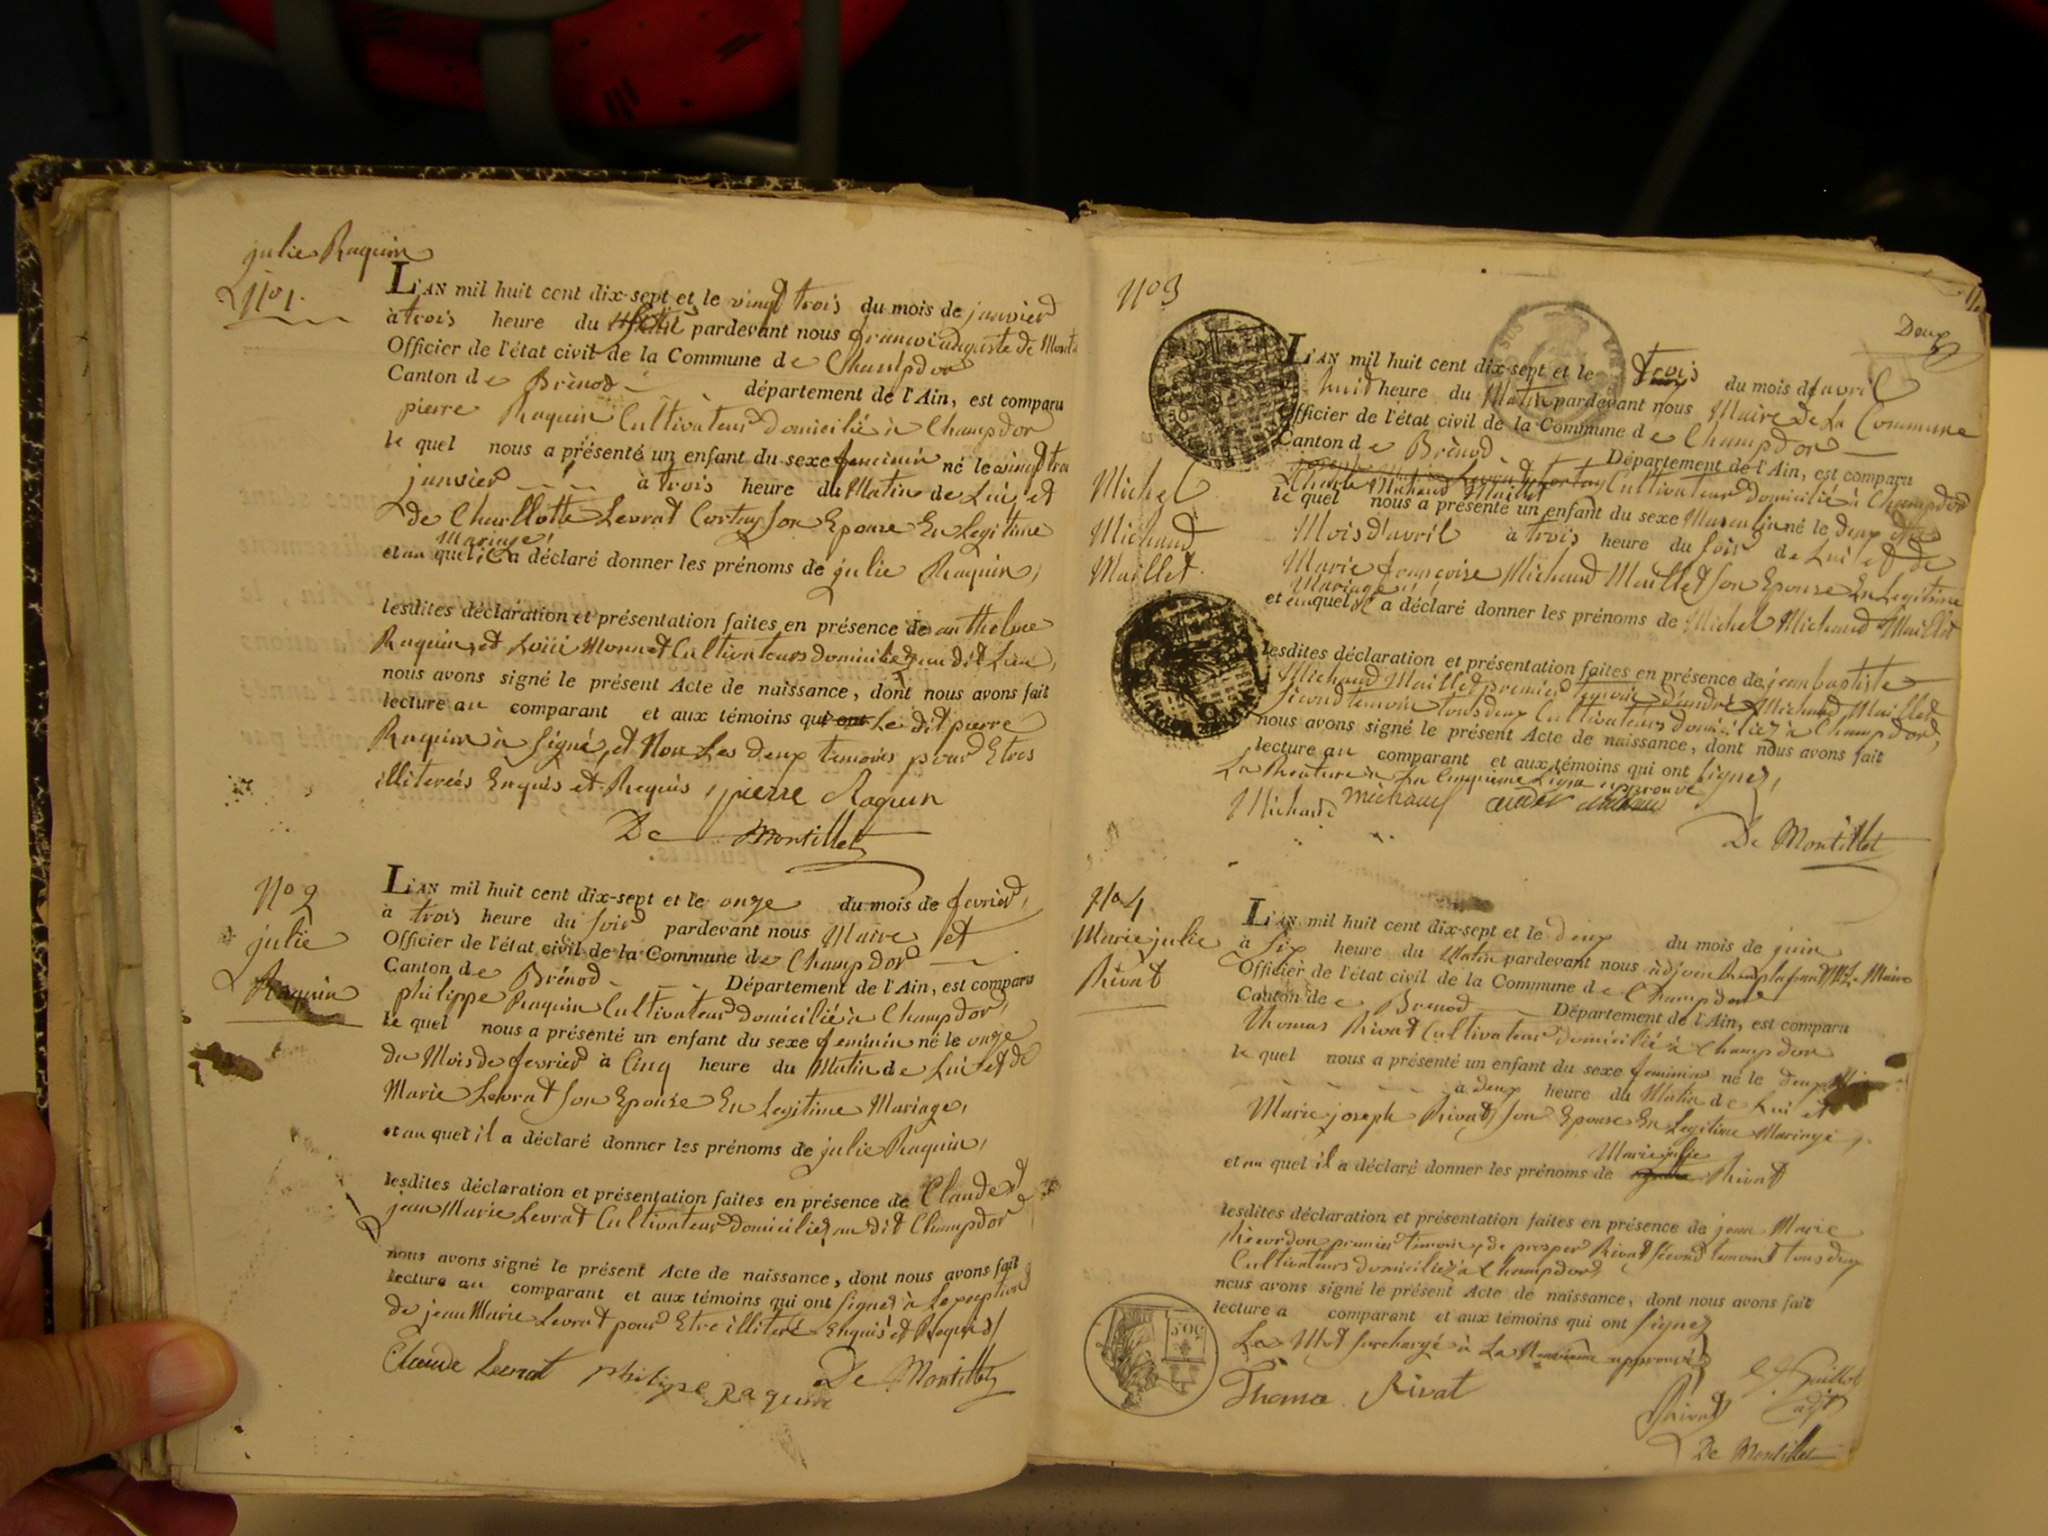 julie Raquin
N° 1.
L'AN mil huit cent dix-sept et le vingt trois du mois de janvier
à trois heure du pardevant nous françois auguste de
Officier de l'état civil de la Commune de Champdor
Canton de Brénod département de l'Ain, est comparu
pierre Raquin Cultivateur domicilié à Champdor
le quel nous a présenté un enfant du sexe feminin né le vingt
janvier à trois heure du Matin de Lui et
de Charllotte Levrat Cortay son Epouse En Legitime
Mariage
et au quel il a déclaré donner les prénoms de julie Raquin,
lesdites déclaration et présentation faites en présence de anthelme
Raquin, et Louis Monnet Cultivateurs domiciliez au dit Lieu,
nous avons signé le présent Acte de naissance, dont nous avons fait
lecture au comparant et aux témoins qui ont Le dit pierre
Raquin à signé, et Non Les deux temoins pour Etres
illitereés Enquis et Requis, pierre Raquin
De Montillet
N° 2
julie
Raquin
L'AN mil huit cent dix-sept et le onze du mois de fevrier,
à trois heure du soir pardevant nous Maire et
Officier de l'état civil de la Commune de Champdor
Canton de Brénod Département de l'Ain, est comparu
philippe Raquin Cultivateur domicilié à Champdor,
le quel nous a présenté un enfant du sexe feminin né le onze
du Mois de fevrier à Cinq heure du Matin de Lui et de
Marie Levrat son Epouse En Legitime Mariage,
et au quel il a déclaré donner les prénoms de julie Raquin,
lesdites déclaration et présentation faites en présence de Claude et
jean Marie Levrat Cultivateur domiciliez au dit Champdor
nous avons signé le présent Acte de naissance, dont nous avons fait
lecture au comparant et aux témoins qui ont signez à Lexeption
de jean Marie Levrat pour Etre illiteré Enquis et Requis/
Claude Levrat philippe Raquin De Montillet
N° 3
Deux
Michel
Michaud
Maillet
L'AN mil huit cent dix-sept et le trois du mois d'avril
huit heure du Matin pardevant nous Maire de La Commune
Officier de l'état civil de la Commune de Champdor
Canton de Brénod. Département de l'Ain, est comparu
Michaud Maillet Cultivateur domicilié à Champdor
le quel nous a présenté un enfant du sexe Masculin né le deux du
Mois d'avril à trois heure du soir de Lui et de
Marie françoise Michaud Maillet son Epouse En Legitime
Mariage
et au quel il a déclaré donner les prénoms de Michel Michaud Maillet
lesdites déclaration et présentation faites en présence de jean baptiste
Michaud Maillet premier temoin d'andré Michaud Maillet
second temoin tous deux Cultivateurs domiciliez à Champdor,
nous avons signé le présent Acte de naissance, dont nous avons fait
lecture au comparant et aux témoins qui ont signez,
La Rature à La Cinquieme Ligne approuvé
Michaud michaud
De Montillet
N° 4
Marie julie
Rivat
L'AN mil huit cent dix-sept et le deux du mois de juin
à six heure du Matin pardevant nous adjoint Maire
Officier de l'état civil de la Commune de Champdor
Canton de Brénod Département de l'Ain, est comparu
Thomas Rivat Cultivateur domicilié à Champdor
le quel nous a présenté un enfant du sexe feminin né le deux
à deux heure du Matin de Lui et
Marie joseph Rivat, son Epouse En Legitime Mariage,
Marie julie
et au quel il a déclaré donner les prénoms de Rivat
lesdites déclaration et présentation faites en présence de jean Marie
premier temoin, de prosper Rivat second temoin tous deux
Cultivateurs domiciliez à Champdor,
nous avons signé le présent Acte de naissance, dont nous avons fait
lecture a comparant et aux témoins qui ont signez
Le Mot surchargé à La Neuvieme approuvé
Thoma Rivat
Rivat
De Montillet
50C